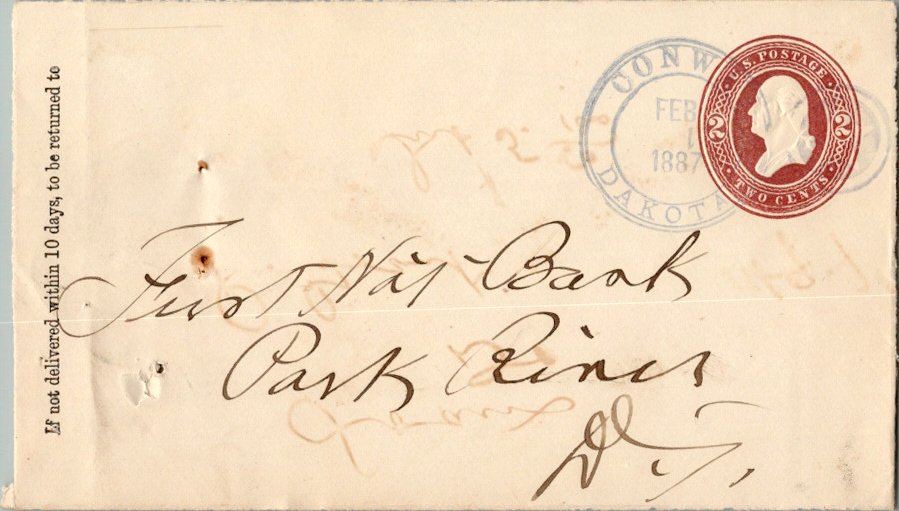 If not delivered within 10 days, to be returned to
CONW
FEB
1
1887
DAKOTA
U.S. POSTAGE
2 2
TWO CENTS
First Nat Bank
Park River
D.T.